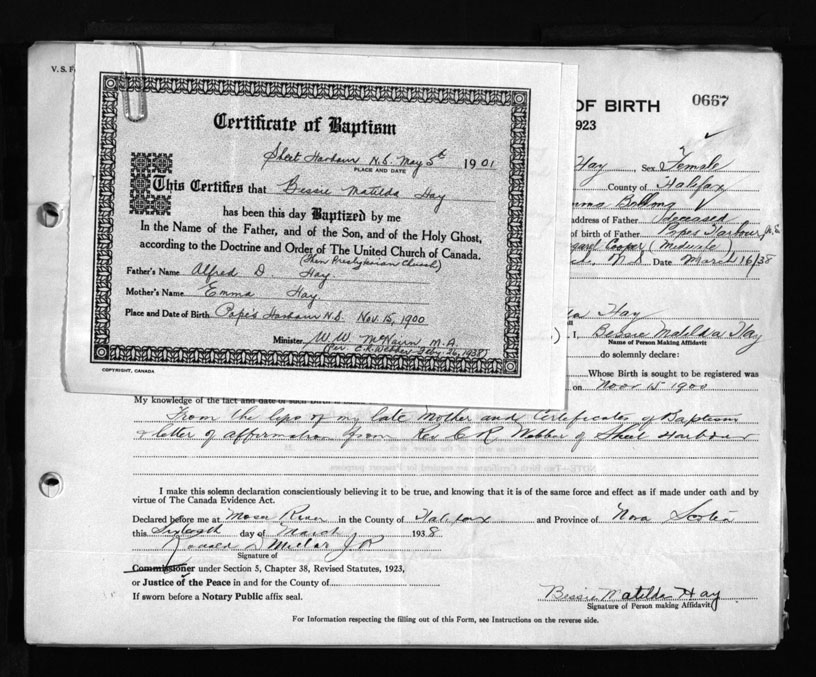 V. S. F
Certificate of Baptism
Sheet Harbour N.S. May 5th 1901
PLACE AND DATE
This Certifies that Bessie Matilda Hay
has been this day Baptized by me
In the Name of the Father, and of the Son, and of the Holy Ghost,
according to the Doctrine and Order of The United Church of Canada.
(Then Presbyterian Church)
Father's Name Alfred D. Hay
Mother's Name Emma Hay
Place and Date of Birth Pope's Harbour N.S. Nov. 15, 1900
Minister W. W. McNairn M.A.
(Per C. R. Webber Feby. 26, 1938)
COPYRIGHT, CANADA
OF BIRTH 0667
1923
Hay Sex Female
County of Halifax
mma
address of Father deceased
of birth of Father Popes Harbour N.S.
garet Cooper (Midwife)
N.S. Date March 16/38
Hay
.) I, Bessie Matilda Hay
Name of Person Making Affidavit
do solemnly declare:
Whose Birth is sought to be registered was
on Nov 15 1900
My knowledge of the fact and date of such birth is
From the lips of my late Mother and Certificates of Baptism
& letter of affirmation from Rev C R Webber of Sheet Harbour
I make this solemn declaration conscientiously believing it to be true, and knowing that it is of the same force and effect as if made under oath and by
virtue of The Canada Evidence Act.
Declared before me at Moser River in the County of Halifax and Province of Nova Scotia
this Sixteenth day of March 1938
Ronald D Millar J P
Signature of
Commissioner under Section 5, Chapter 38, Revised Statutes, 1923,
or Justice of the Peace in and for the County of
If sworn before a Notary Public affix seal.
Bessie Matilda Hay
Signature of Person making Affidavit
For Information respecting the filling out of this Form, see Instructions on the reverse side.